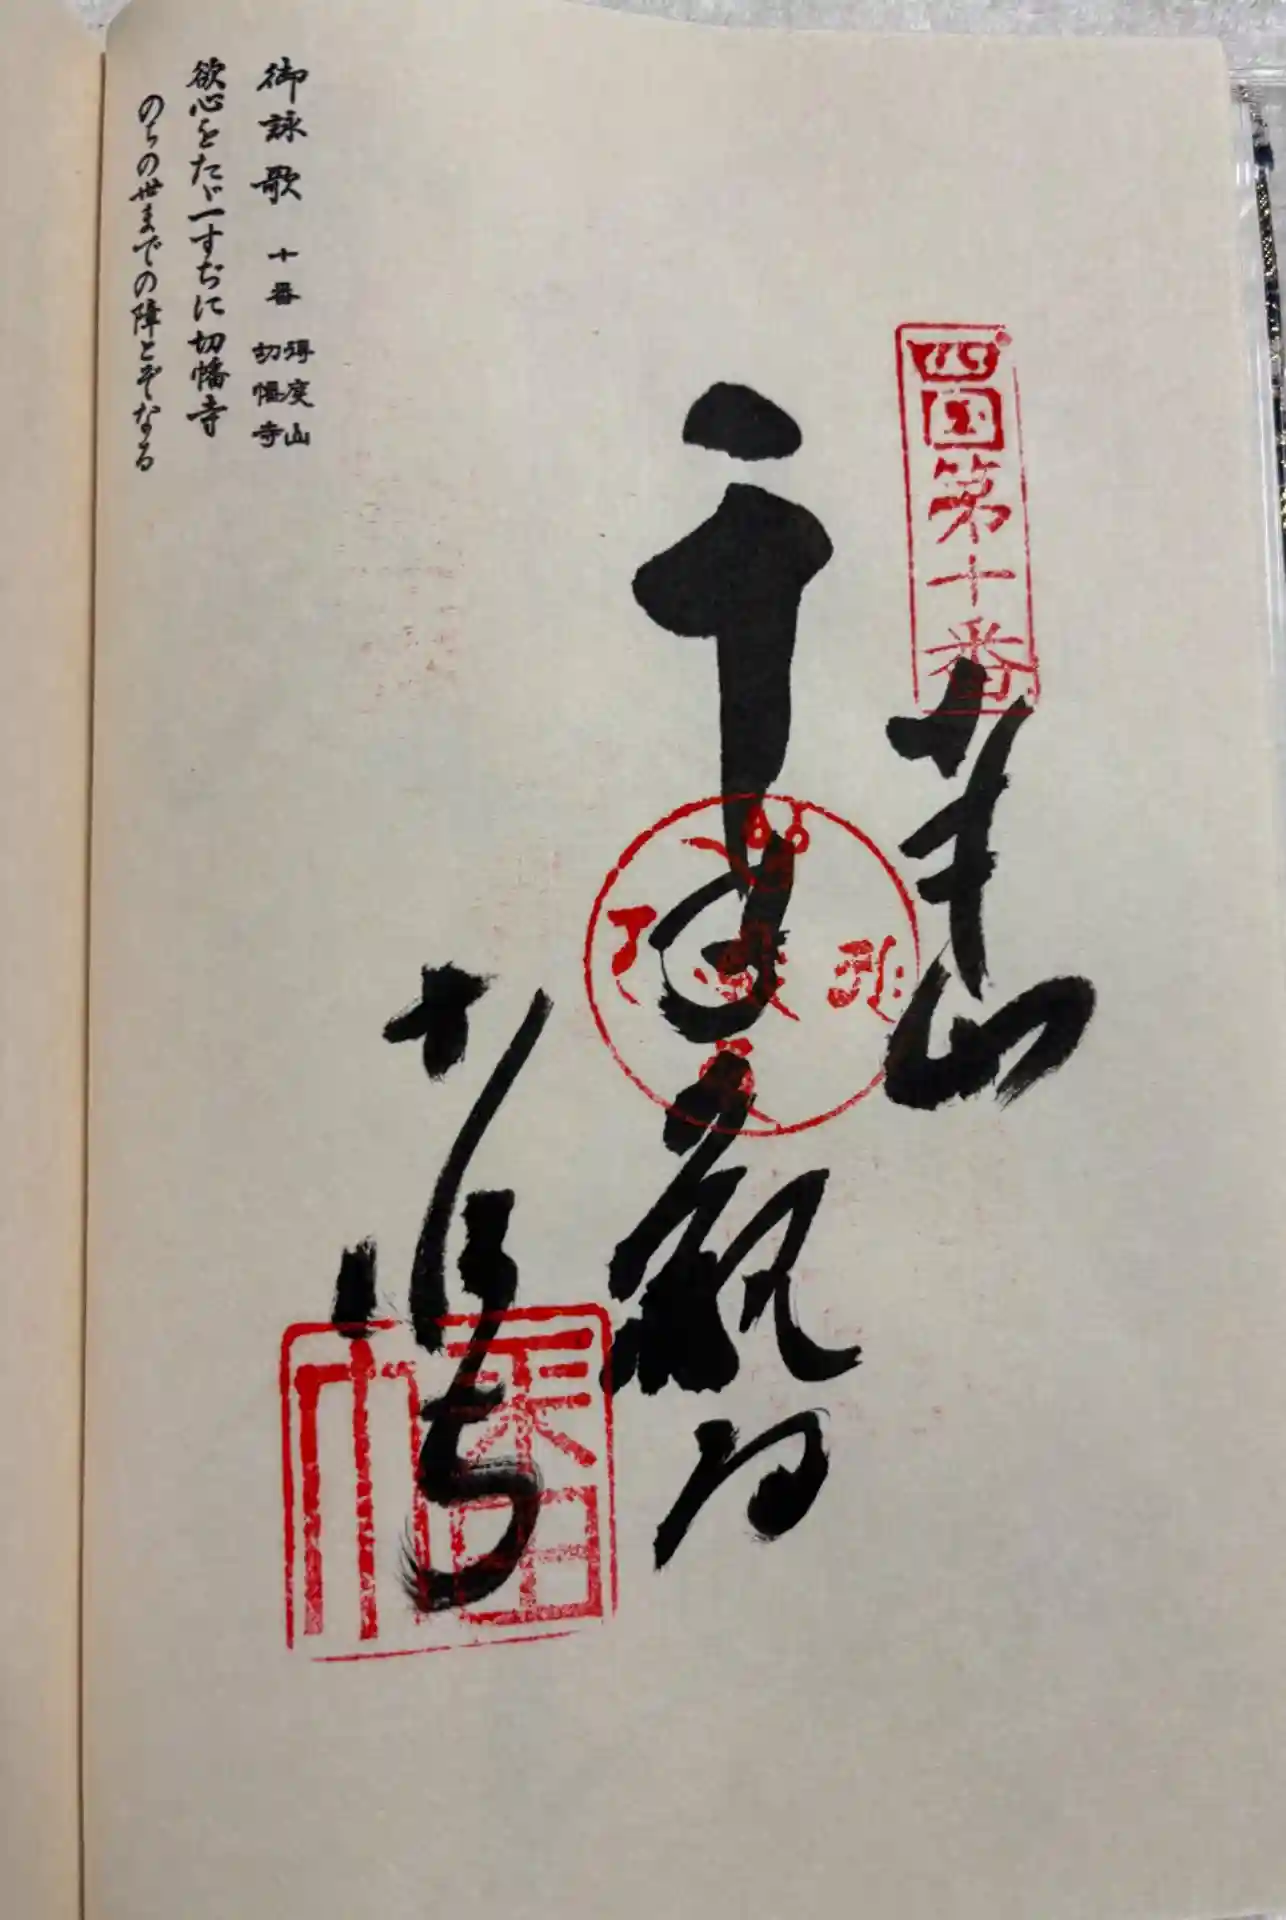 四国第十番
奉
千手観音
切幡寺
御詠歌 十番 得度山 切幡寺
欲心をたゞ一すぢに切幡寺
のちの世までの障とぞなる